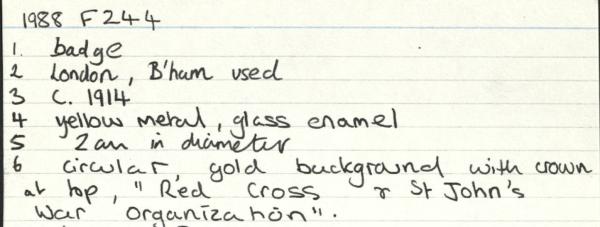 1988 F244
1. badge
2 London, B'ham used
3 C. 1914
4 yellow metal, glass enamel
5 2cm in diameter
6 circular, gold background with crown
at top, "Red Cross & St John's
War Organization".